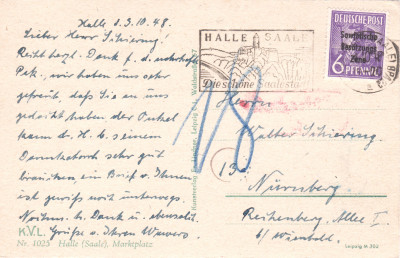 Halle d. 3. 10. 48.
Lieber Herr Schiering!
Recht herzl. Dank f. d.
Pak., wir haben uns sehr
gefreut, daß Sie an uns
gedacht haben der Onkel
kann d. H. b. seinem
sehr gut
brauchen, ein Brief v. Ihnen
ist gewiß noch unterwegs.
Nochm. hz. Dank u. ebensolch.
Grüße v. Ihren
K.V.L.
Nr. 1025 Halle (Saale), Marktplatz
HALLE SAALE
Die schöne Saalestadt
DEUTSCHE POST
Sowjetische
Besatzungs
Zone
6 PFENNIG
18
Herrn
Walter Schiering
Nürnberg
Reichenberg. Allee I
b/
Leipzig M 302